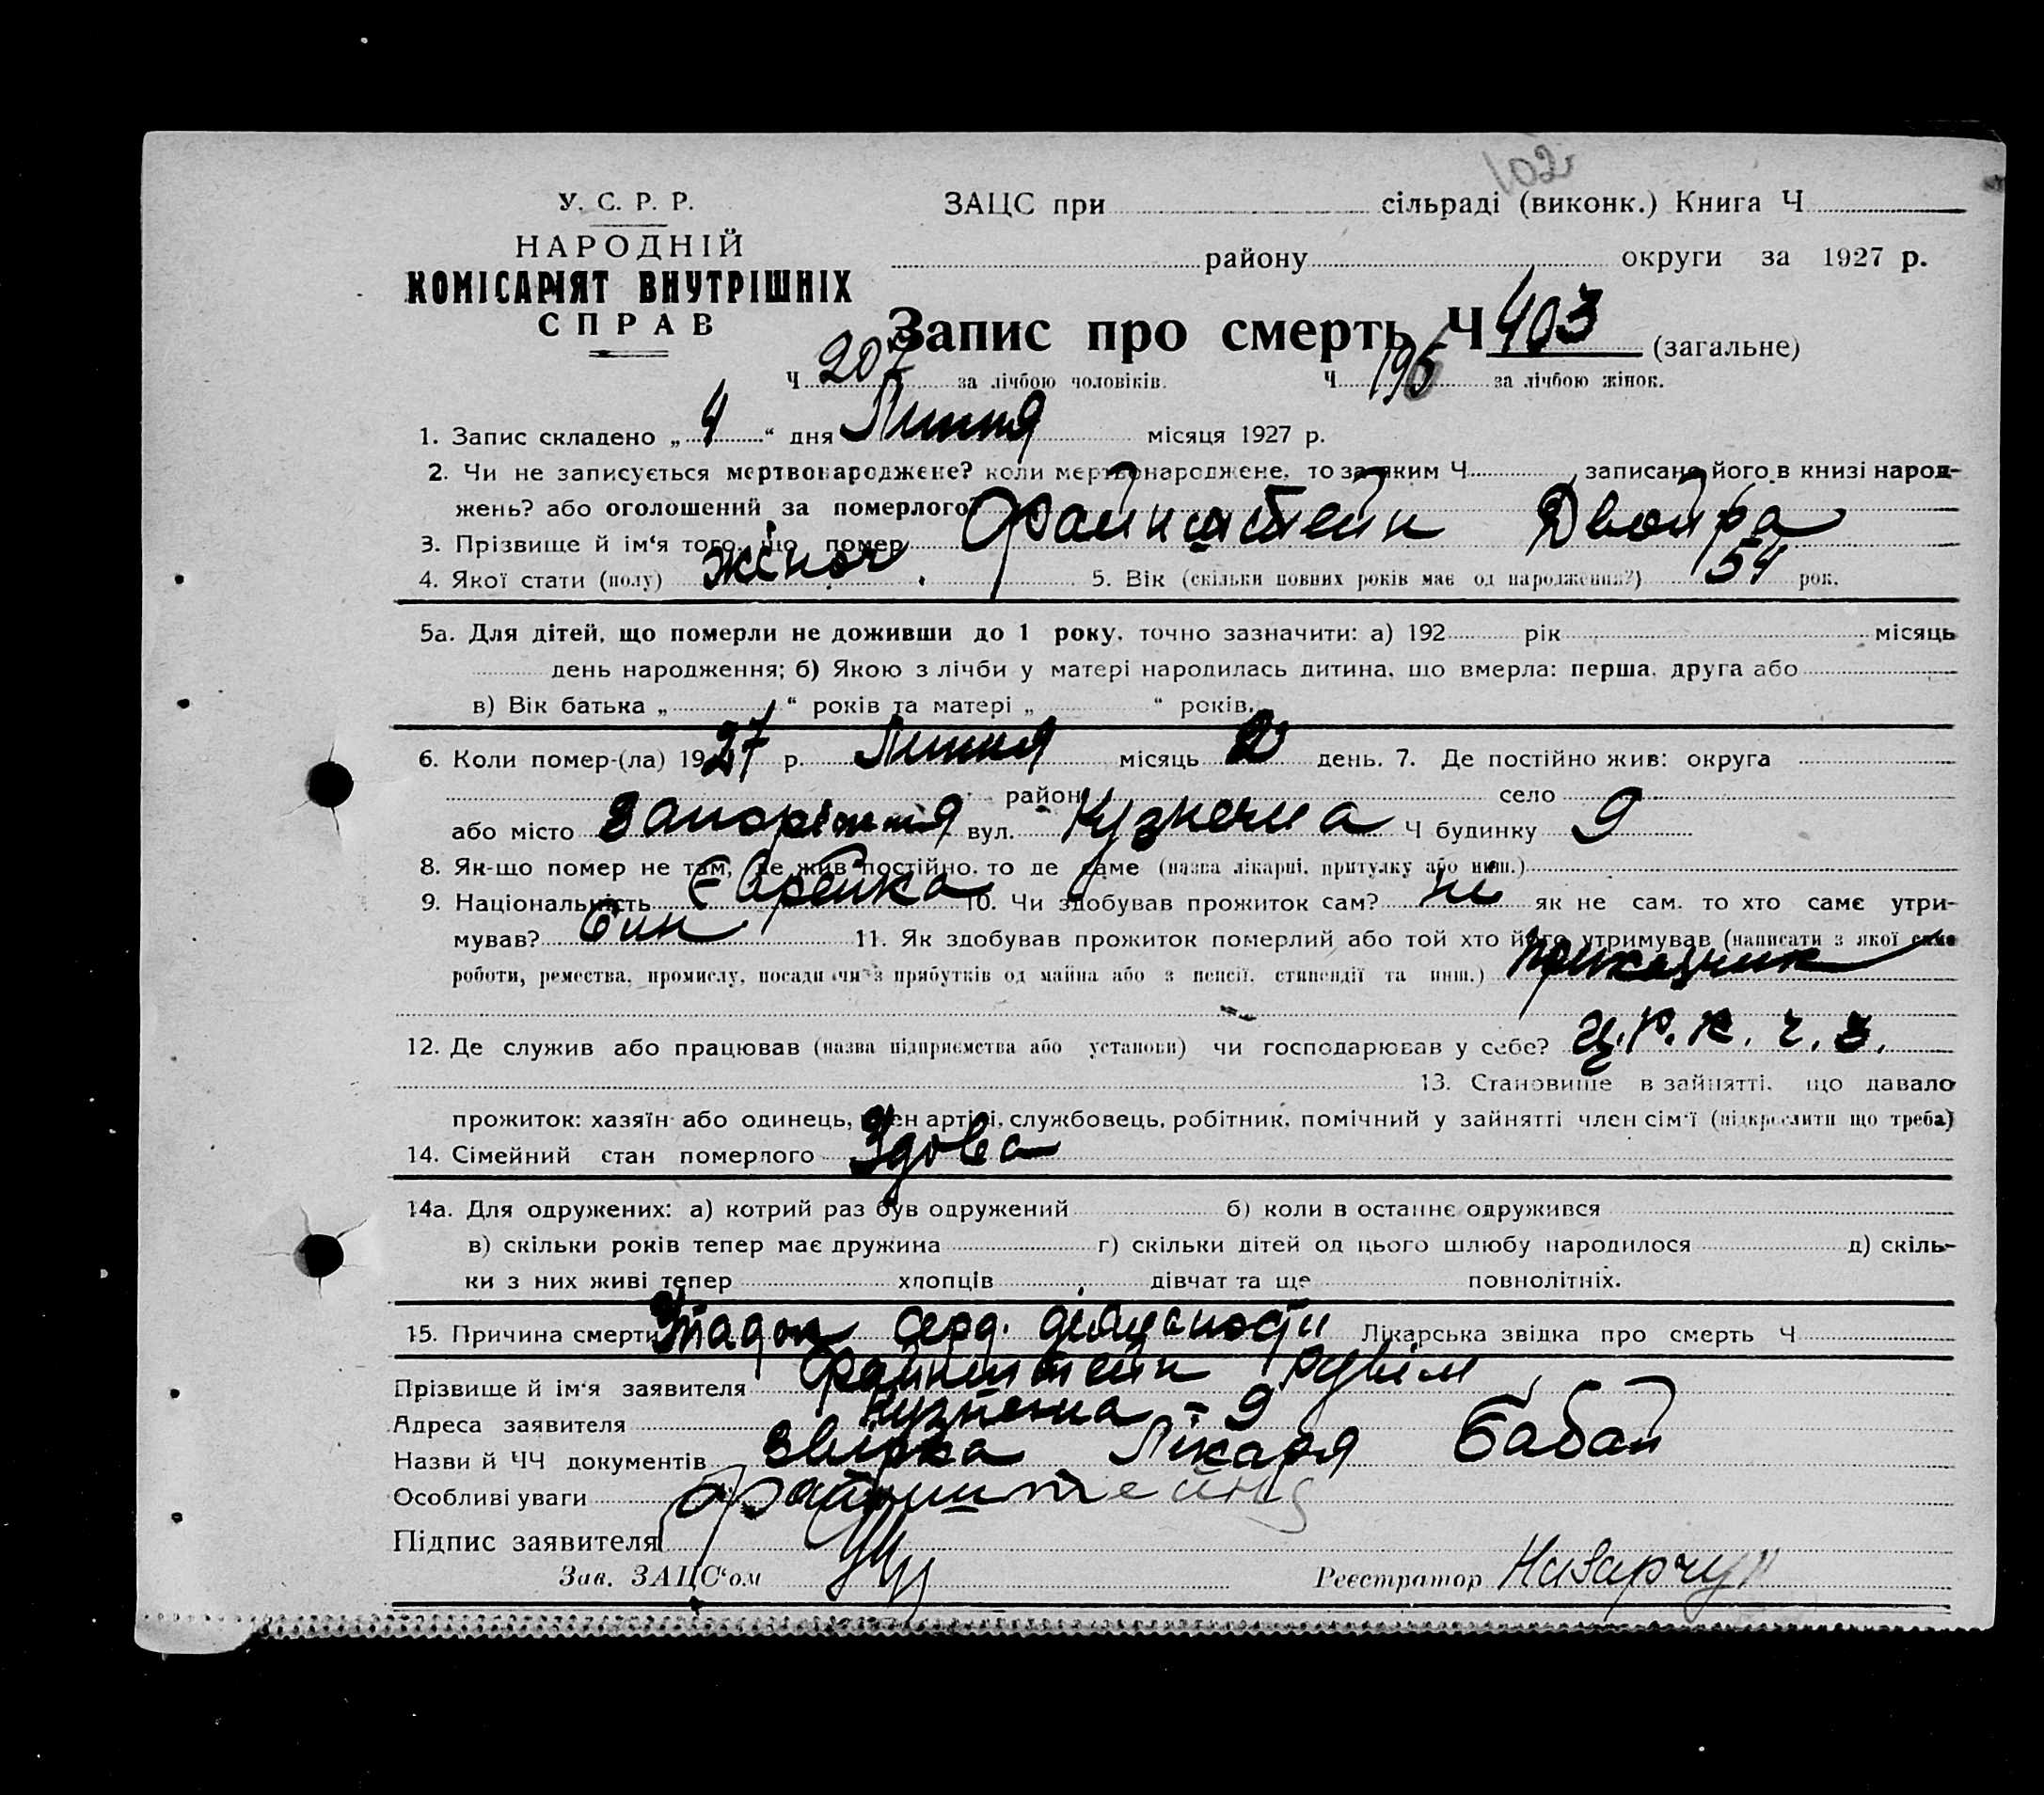 102
У. С. Р. Р.
НАРОДНІЙ
КОМІСАРІЯТ ВНУТРІШНІХ
СПРАВ
ЗАЦС при сільраді (виконк.) Книга Ч
району округи за 1927 р.
Запис про смерть Ч 403 (загальне)
Ч 207 за лічбою чоловіків. Ч 195 за лічбою жінок.
1. Запис складено „ 4 “ дня Липня місяця 1927 р.
2. Чи не записується мертвонароджене? коли мертвонароджене, то за яким Ч , записано його в книзі народ-
жень? або оголошений за померлого?
3. Прізвище й ім‘я того, що помер Файнштейн Двойра
4. Якої стати (полу) жіноч. 5. Вік (скільки повних років має од народження?) 54 рок.
5а. Для дітей, що померли не доживши до 1 року, точно зазначити: а) 192 рік місяць
день народження; б) Якою з лічби у матері народилась дитина, що вмерла: перша, друга або
в) Вік батька „ “ років та матері „ “ років.
6. Коли помер-(ла) 1927 р. Липня місяць 2 день. 7. Де постійно жив: округа
район село
або місто Запоріжжя вул. Кузнечна Ч будинку 9
8. Як-що помер не там, де жив постійно, то де саме (назва лікарні, притулку або инш.)
9. Національність Єврейка 10. Чи здобував прожиток сам? ні як не сам, то хто саме утри-
мував? Син 11. Як здобував прожиток померлий або той хто його утримував (написати з якої саме
роботи, ремества, промислу, посади чи з прибутків од майна або з пенсії, стипендії та инш.) Прикащик
12. Де служив або працював (назва підприємства або установи) чи господарював у себе? Ц.Р.К. г. З.
13. Становище в зайнятті, що давало
прожиток: хазяїн або одинець, член артілі, службовець, робітник, помічний у зайнятті член сім‘ї (підкреслити що треба)
14. Сімейний стан померлого Здова
14а. Для одружених: а) котрий раз був одружений б) коли в останнє одружився
в) скільки років тепер має дружина г) скільки дітей од цього шлюбу народилося д) скіль-
ки з них живі тепер хлопців, дівчат та ще повнолітніх.
15. Причина смерти серд. Лікарська звідка про смерть Ч
Прізвище й ім‘я заявителя Файнштейн Рувім
Адреса заявителя Кузнечна - 9
Назви й ЧЧ документів Лікаря Бабат
Особливі уваги
Підпис заявителя Файнштейн
Зав. ЗАЦС‘ом Реєстратор Назарчук